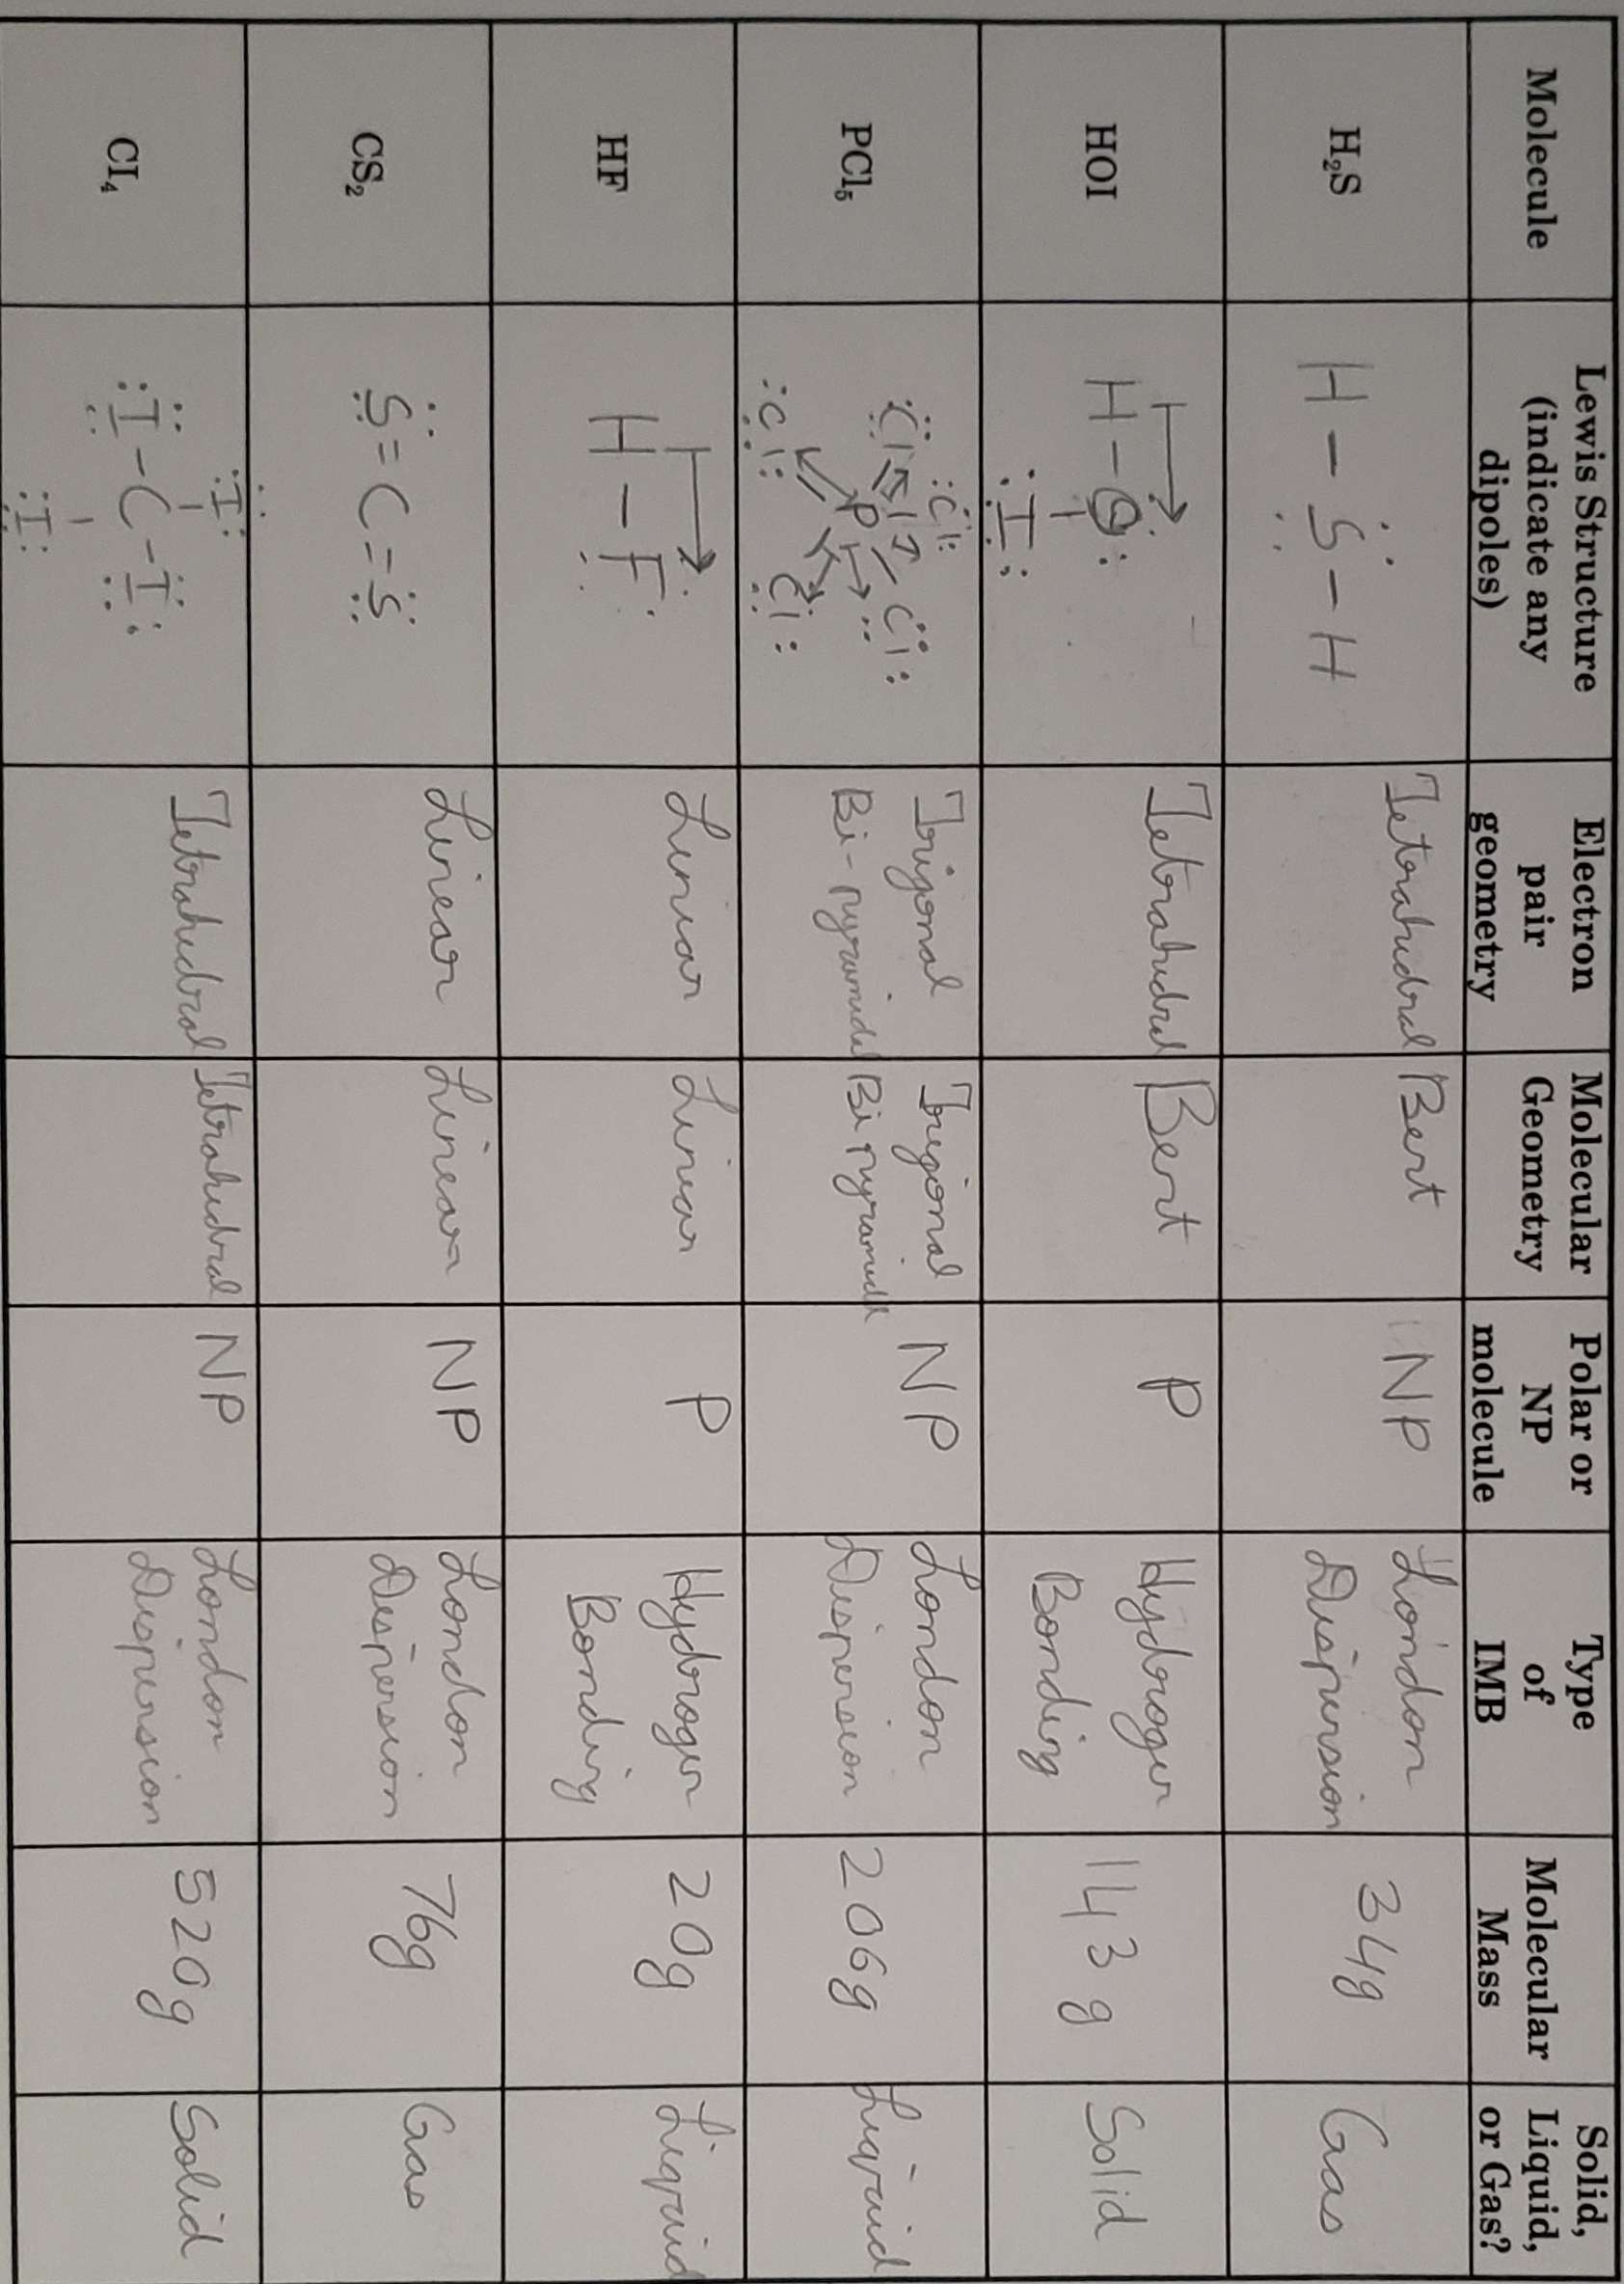 Molecule
Lewis Structure
(indicate any
dipoles)
Electron
pair
geometry
Molecular
Geometry
Polar or
NP
molecule
Type
of
IMB
Molecular
Mass
Solid,
Liquid,
or Gas?
H₂S
H - S - H
Tetrahedral
Bent
NP
London
Dispersion
34g
Gas
HOI
H - O:
:I:
Tetrahedral
Bent
P
Hydrogen
Bonding
143g
Solid
PCl₅
:Cl:
:Cl Cl:
P
:Cl: Cl:
Trigonal
Bi-pyramidal
Trigonal
Bi pyramidal
NP
London
Dispersion
206g
Liquid
HF
H - F:
Linear
Linear
P
Hydrogen
Bonding
20g
Liquid
CS₂
S = C = S
Linear
Linear
NP
London
Dispersion
76g
Gas
CI₄
:I:
:I - C - I:
:I:
Tetrahedral
Tetrahedral
NP
London
Dispersion
520g
Solid